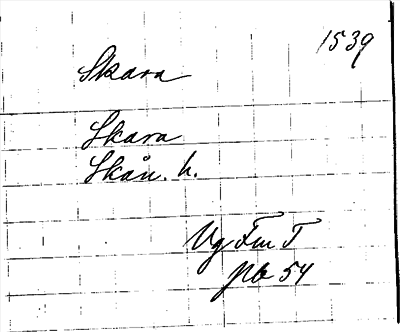 1539
Skara
Skara
Skån. h.
Vg Fm T
p b 54